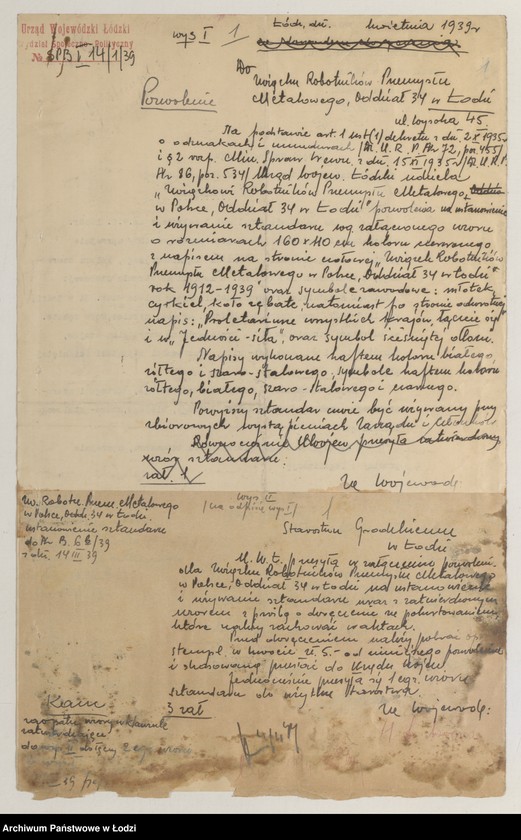 Urząd Wojewódzki Łódzki
Wydział Społeczno-Polityczny
№ SPB I 14/1/39
wys I 1
Łódź, dn. kwietnia 1939 r
1
Do
Związku Robotników Przemysłu
Metalowego, Oddział 34 w Łodzi
ul. Wysoka 45.
Pozwolenie
Na podstawie art. 1 ust (1) dekretu z dn. 2 X 1935 r
o odznakach i mundurach /Dz. U. R. P. Nr 72, poz. 455/
i § 2 rozp. Min. Spraw Wewn. z dn. 15 XI 1935 r /Dz. U. R. P.
Nr 86, poz. 534/ Urząd Wojew. Łódzki udziela
„Związkowi Robotników Przemysłu Metalowego
w Polsce, Oddział 34 w Łodzi" pozwolenia na ustanowienie
i używanie sztandaru wg załączonego wzoru
o rozmiarach 160 x 110 cm koloru czerwonego
z napisem na stronie czołowej „Związek Robotników
Przemysłu Metalowego w Polsce, Oddział 34 w Łodzi"
rok 1912-1939" oraz symbole zawodowe: młotek,
cyrkiel, koło zębate, natomiast po stronie odwrotnej
napis: „Proletariusze wszystkich krajów łączcie się"
i w „Jedności - siła", oraz symbol ściśniętej dłoni.
Napisy wykonane haftem koloru białego,
żółtego i szaro-stalowego, symbole haftem koloru
żółtego, białego, szaro-stalowego i czarnego.
Powyższy sztandar może być używany przy
zbiorowych wystąpieniach Zarządu i członków
Równocześnie przesyła zatwierdzony
wzór sztandaru.
zał. 1
Za Wojewodę
Zw. Robotn. Przem. Metalowego
w Polsce, Oddz. 34 w Łodzi
ustanowienie sztandaru
do Nr B 66/39
z dn. 14 III 39
wys. II
/na odpisie wys I/
1
Staroście Grodzkiemu
w Łodzi
U. W. Ł. przesyła w załączeniu pozwolenie
dla Związku Robotników Przemysłu Metalowego
w Polsce, Oddział 34 w Łodzi na ustanowienie
i używanie sztandaru wraz z zatwierdzonym
wzorem z prośbą o doręczenie za pokwitowaniem,
które należy zachować w aktach.
Przed doręczeniem należy pobrać opł.
stempl. w kwocie zł. 5.- od niniejszego pozwolenia
i skasowaną przesłać do Urzędu Wojew.
Jednocześnie przesyła się 1 egz. wzoru
sztandaru do użytku Starostwa.
3 zał
Za Wojewodę: